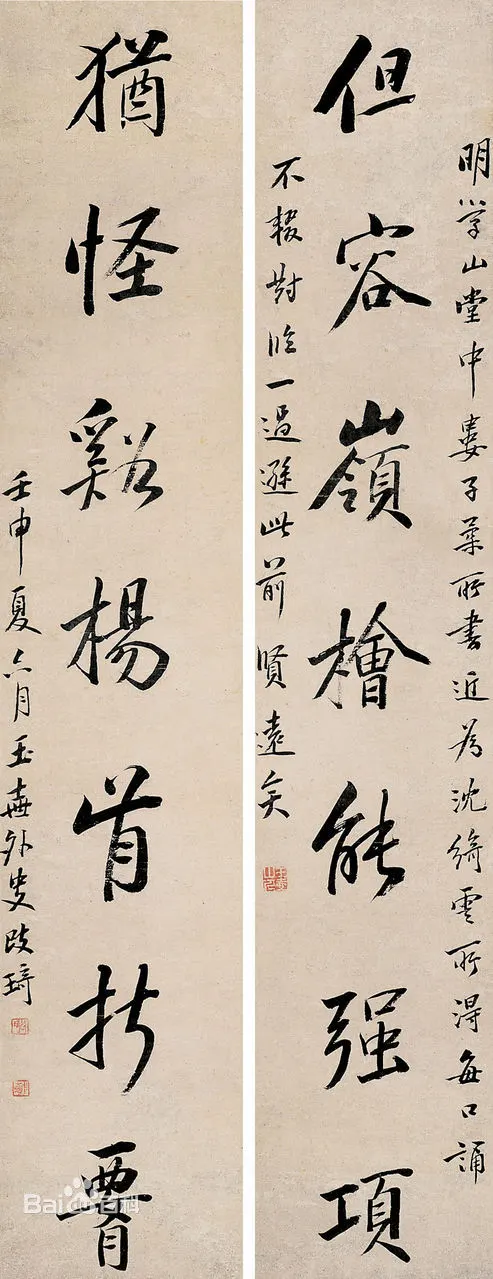 但容嶺檜能强項
明學山堂中婁子柔所書近為沈綺雲所得每口誦
不輟對臨一過遜此前賢遠矣
猶怪谿楊肯折腰
壬申夏六月玉壺外史改琦
Bai百科